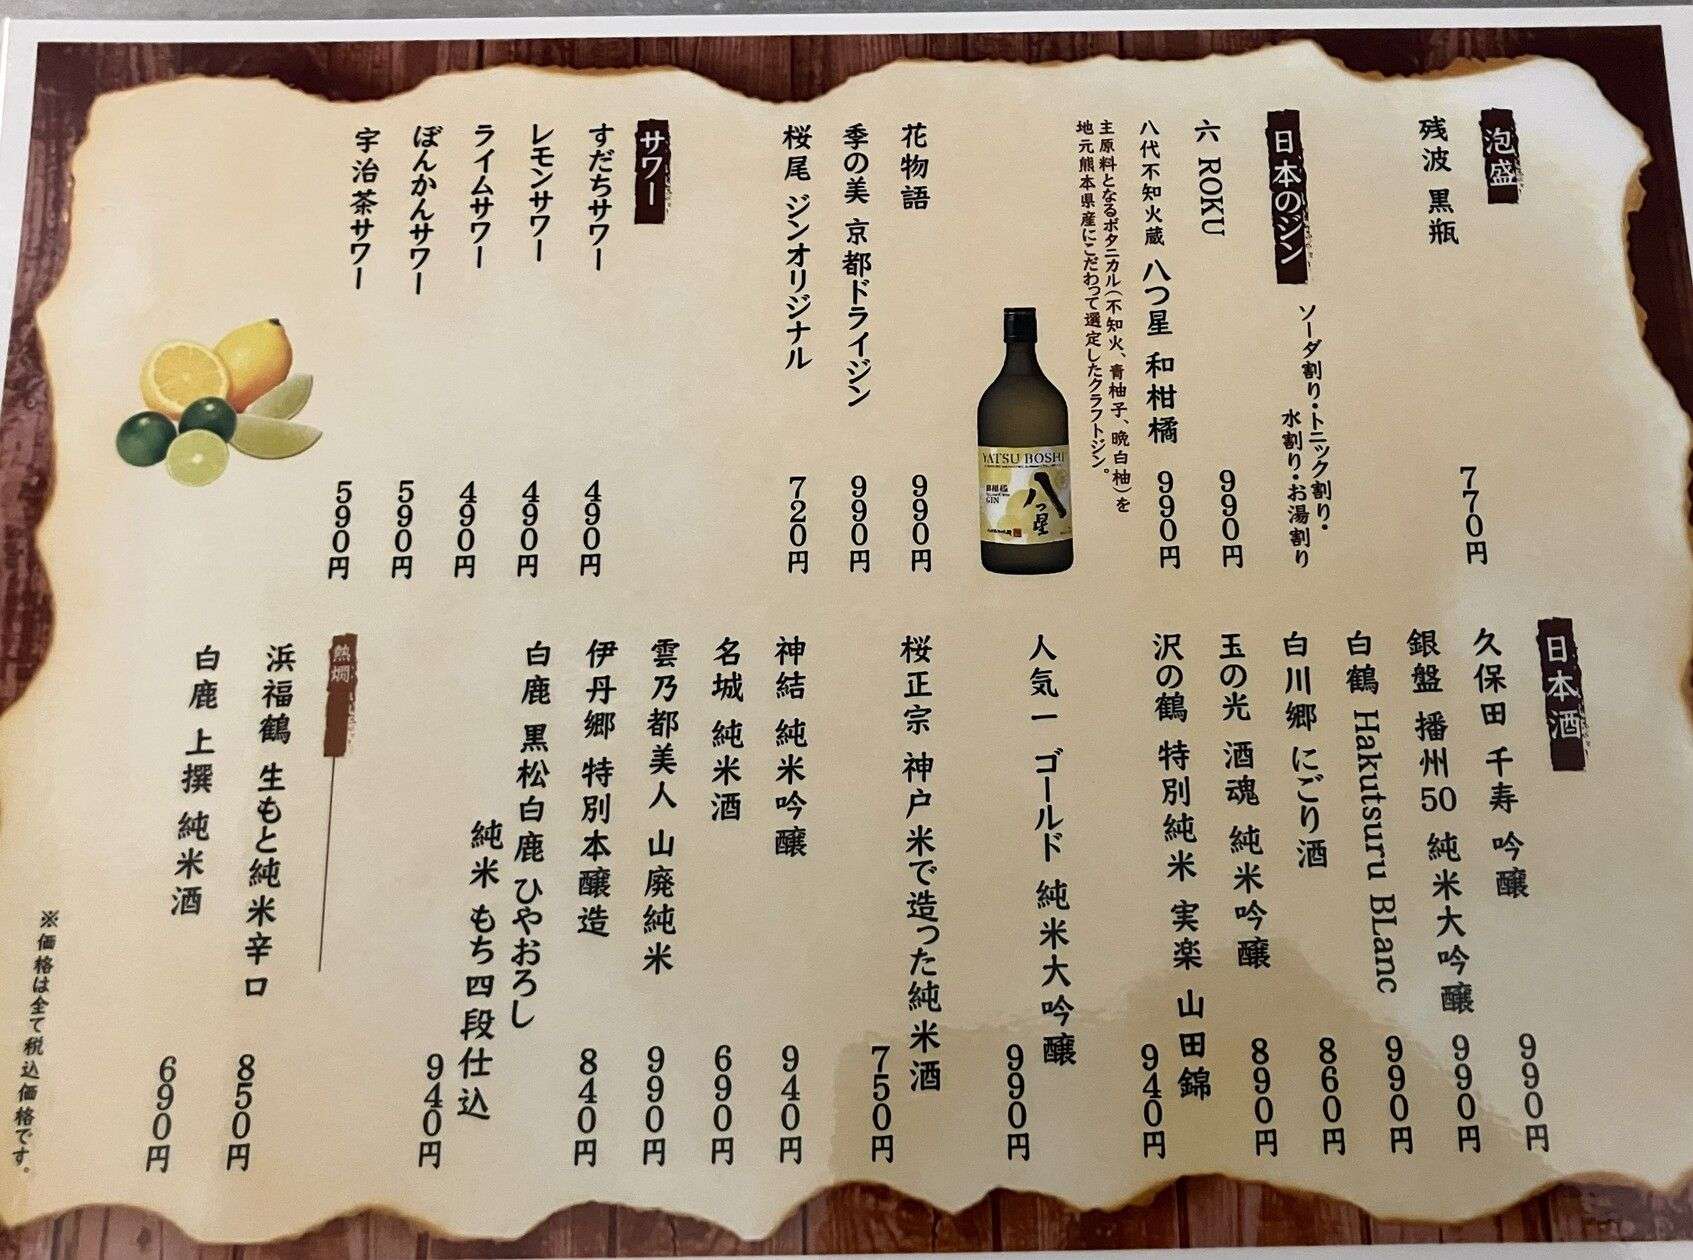 泡盛
残波 黒瓶 770円
日本のジン
ソーダ割り・トニック割り・
水割り・お湯割り
六 ROKU 990円
八代不知火蔵 八つ星 和柑橘 990円
主原料となるボタニカル(不知火、青柚子、晩白柚)を
地元熊本県産にこだわって選定したクラフトジン。
YATSU BOSHI
GIN
八つ星
花物語 990円
季の美 京都ドライジン 990円
桜尾 ジンオリジナル 720円
サワー
すだちサワー 490円
レモンサワー 490円
ライムサワー 490円
ぽんかんサワー 590円
宇治茶サワー 590円
日本酒
久保田 千寿 吟醸 990円
銀盤 播州50 純米大吟醸 990円
白鶴 Hakutsuru BLanc 990円
白川郷 にごり酒 860円
玉の光 酒魂 純米吟醸 890円
沢の鶴 特別純米 実楽 山田錦 940円
人気一 ゴールド 純米大吟醸 990円
桜正宗 神戸米で造った純米酒 750円
神結 純米吟醸 940円
名城 純米酒 690円
雲乃都美人 山廃純米 990円
伊丹郷 特別本醸造 840円
白鹿 黒松白鹿 ひやおろし
純米 もち四段仕込 940円
熱燗
浜福鶴 生もと純米辛口 850円
白鹿 上撰 純米酒 690円
※価格は全て税込価格です。